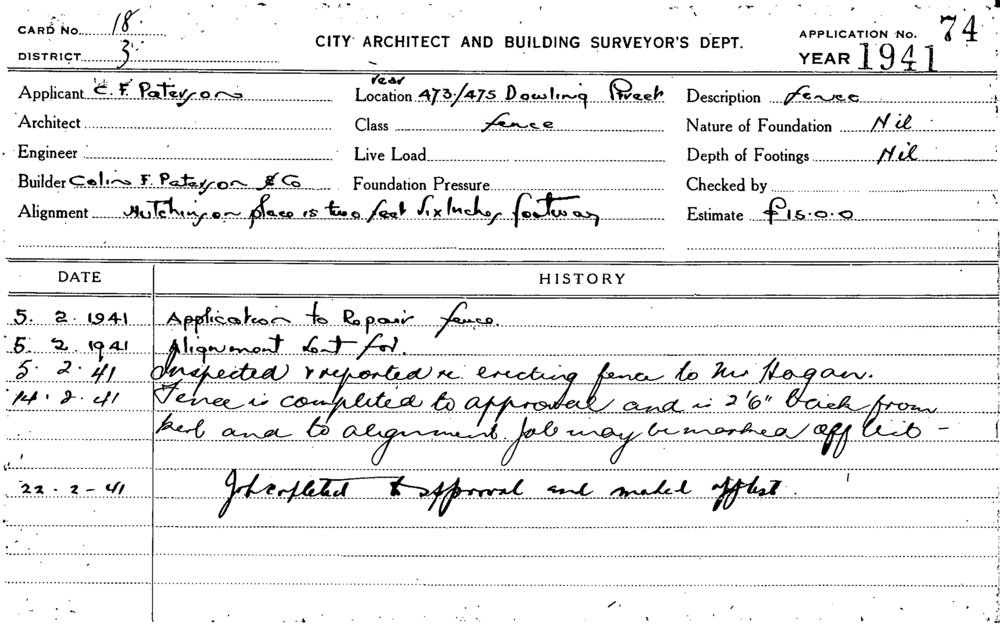 CARD No. 18.
DISTRICT 3
CITY ARCHITECT AND BUILDING SURVEYOR'S DEPT.
APPLICATION No. 74
YEAR 1941
Applicant C. F. Paterson
rear
Location 473/475 Dowling Street
Description fence
Architect
Class fence
Nature of Foundation Nil
Engineer
Live Load
Depth of Footings Nil
Builder Colin F. Paterson & Co
Foundation Pressure
Checked by
Alignment Hutchinson place is two feet six inches footway
Estimate £15.0.0
DATE HISTORY
5. 2. 1941 Application to Repair fence.
5. 2. 1941 Alignment sent for.
5. 2. 41 Inspected & reported re erecting fence to Mr Hogan.
14. 2. 41 Fence is completed to approval and is 2'6" back from
kerb and to alignment. Job may be marked off list –
22. 2 - 41 Job completed to approval and marked off list.